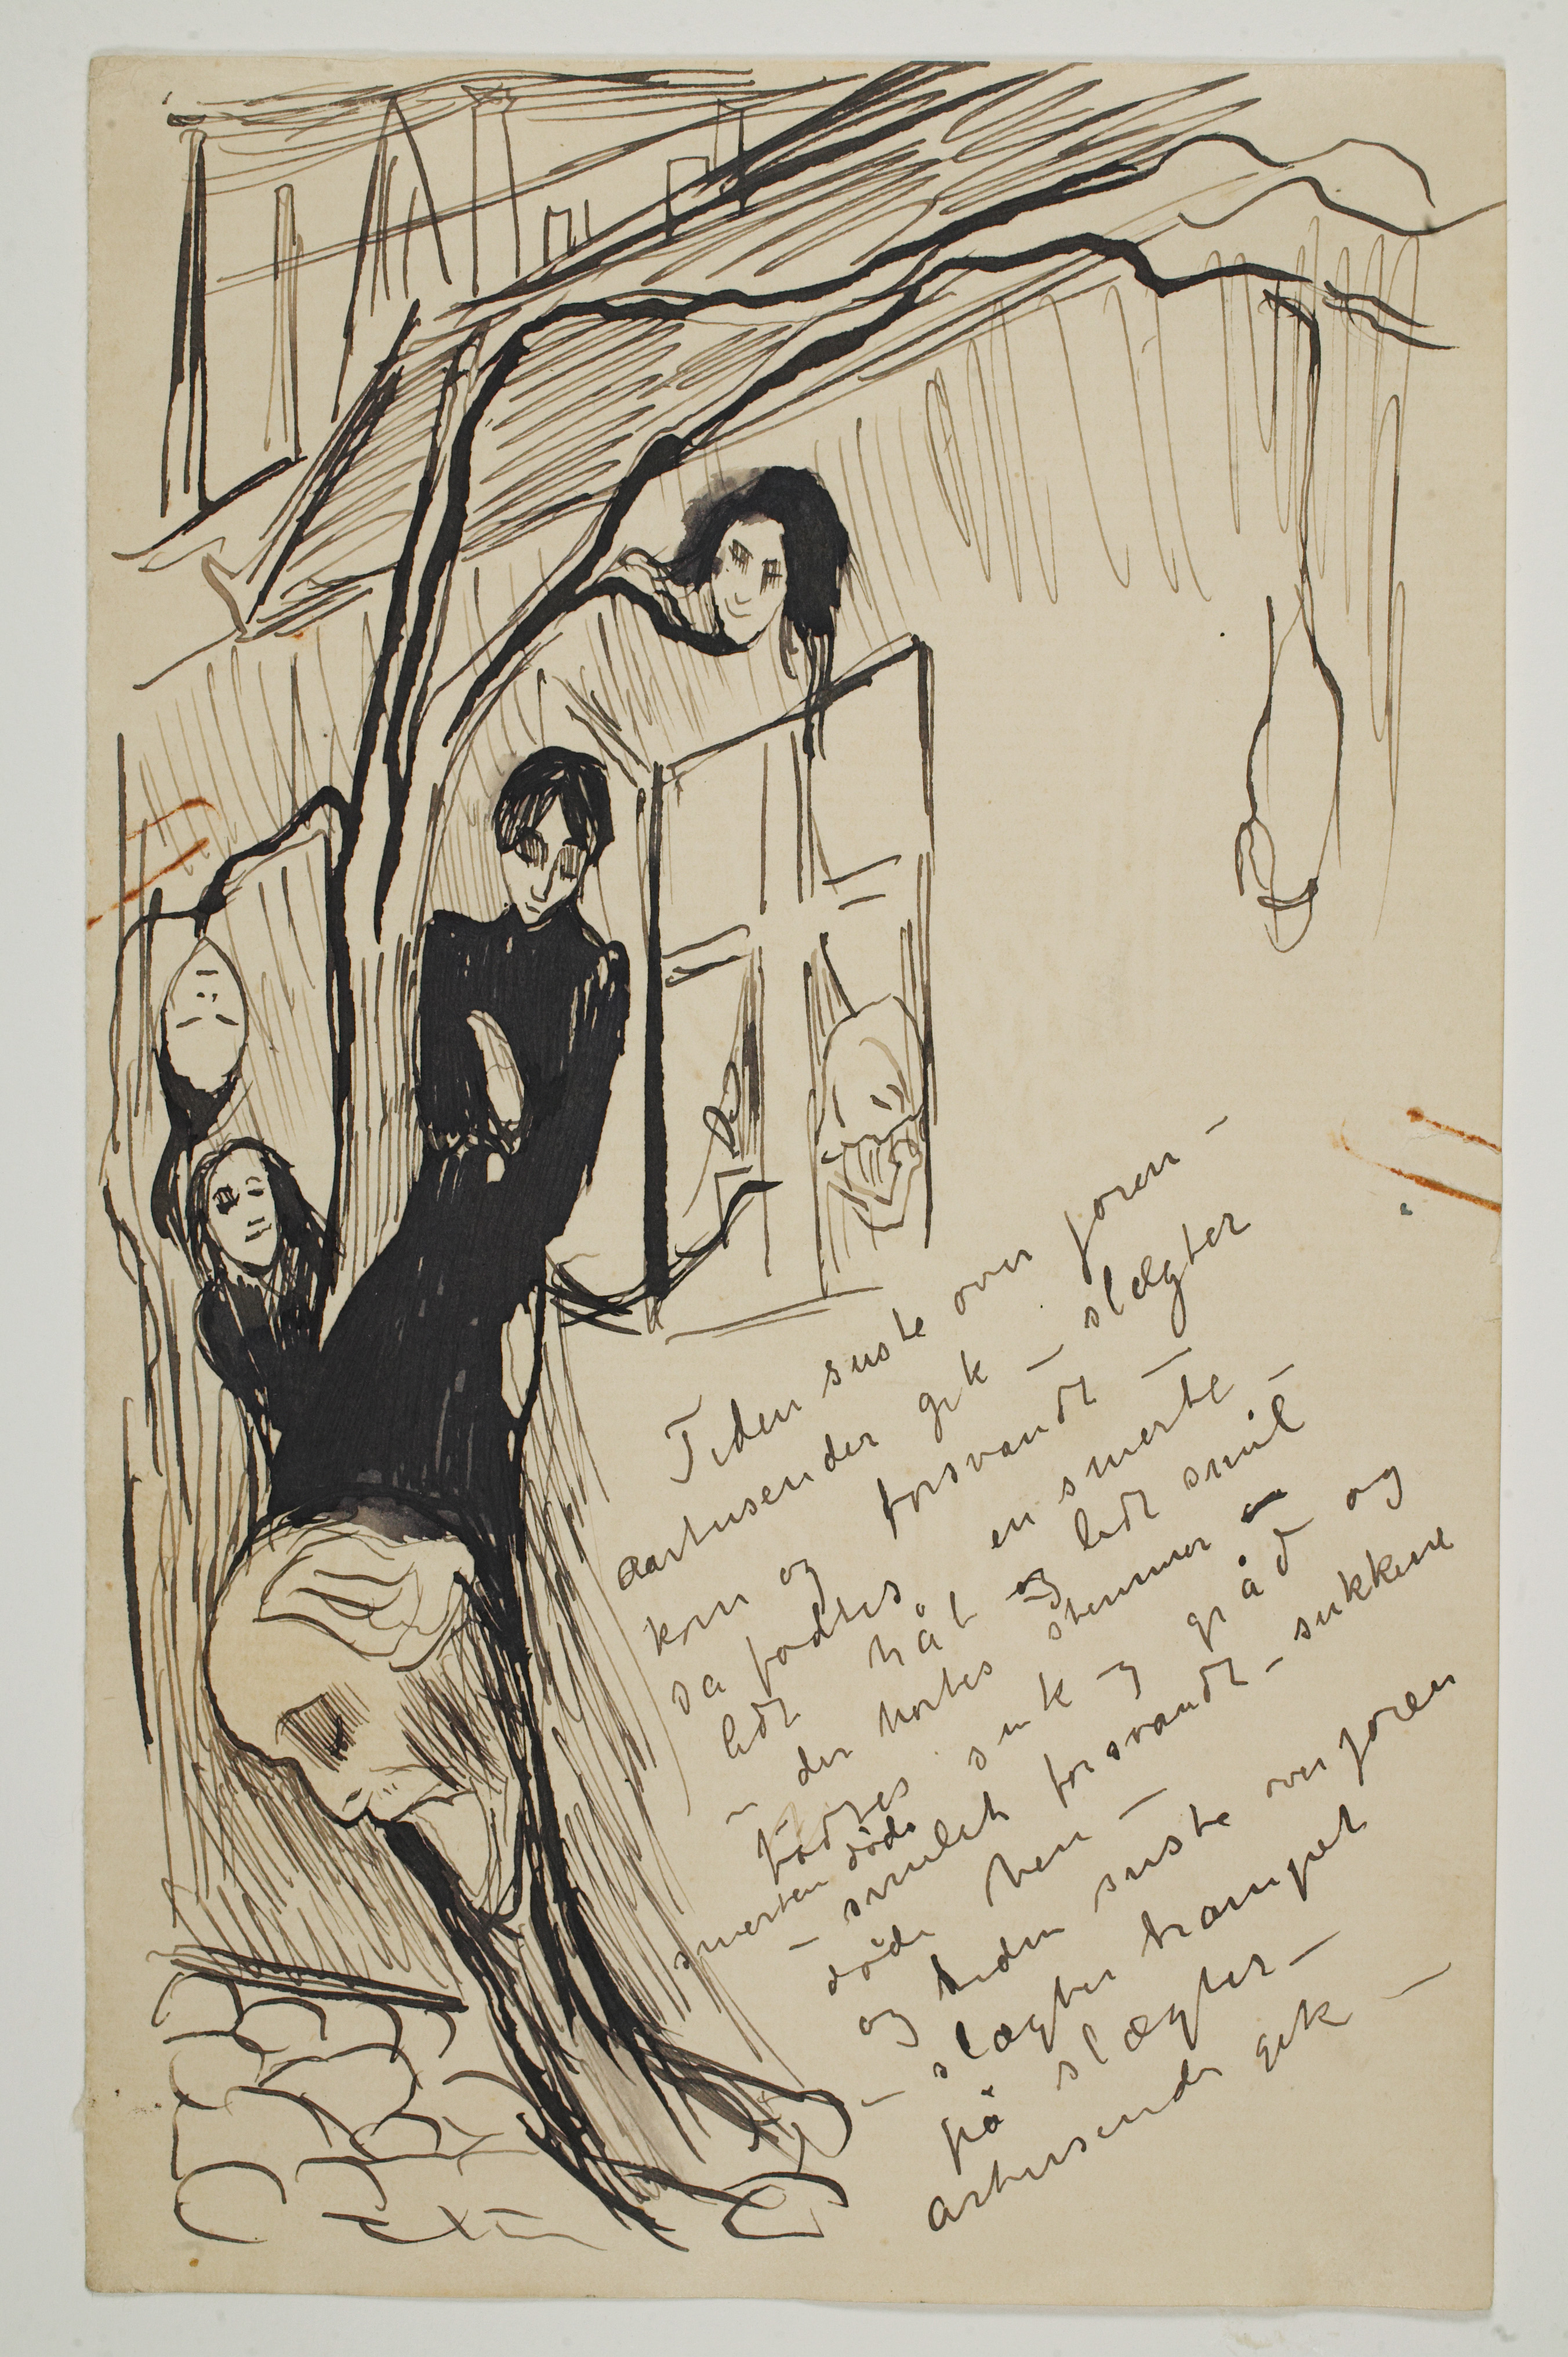 Tiden suste over joren –
aartusender gik – slægter
kom og forsvandt –
Da fødtes en smerte –
lidt håb og lidt smil
– der hørtes stemmer
fødtes suk og gråd og
smerten døde
– smilet forsvandt – sukkene
døde hen –
og tiden suste over joren
– slægter trampet
på slægter –
artusender gik –